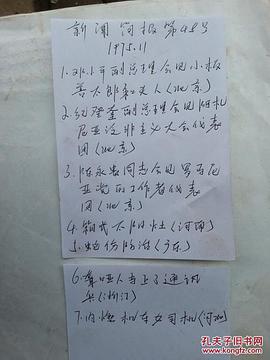 新闻简报第48号
1975.11
1.邓小平副总理会见小坂
善太郎和夫人(北京)
2.纪登奎副总理会见阿尔及
尼亚泛非主义大会代表
团(北京)
3.陈永贵同志会见罗马尼
亚党的工作者代表
团(北京)
4.箱式太阳灶(河南)
5.蛇伤防治(广东)
6.聋哑人寺上了通讯
7.内燃机车女司机(河北)
孔夫子旧书网